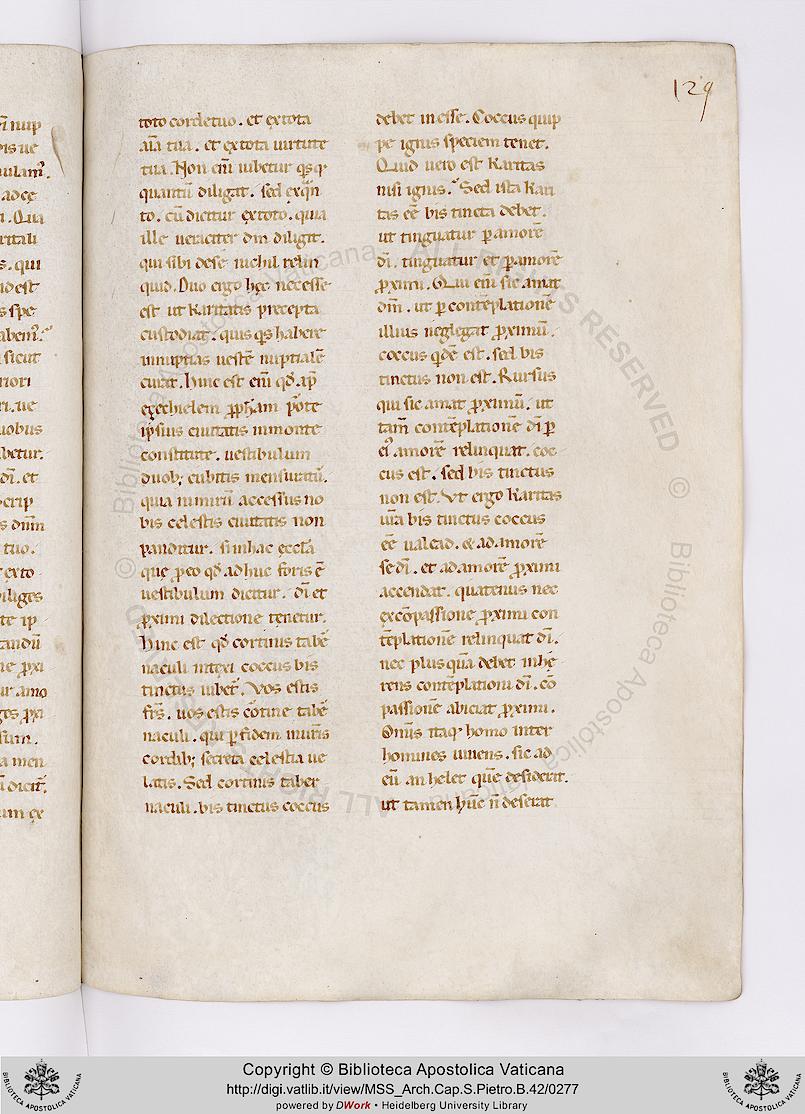 129
toto corde tuo. et ex tota
aīa tua. et ex tota uirtute
tua. Non eni᷑ iubetur qͥsqͣ
quantū diligat. sed ex qͣn
to. cū dicitur ex toto. quia
ille ueraciter dm̄ diligit.
qui sibi de se nichil relin
quid. Duo ergo hęc necesse
est ut karitatis precepta
custodiat. quis qͥs habere
innuptias uestē nuptialē
curat. Hinc est eni᷑ qđ. ap̄
ezechielem ꝓph̄am
ipsius ciuitatis in monte
constitute. uestibulum
duob; cubitis mensuratū.
quia nimirū accessus no
bis celestis ciuitatis non
panditur. si in hac ęccl̄a
quę ꝓ eo qđ ad huc foris ē
uestibulum dicitur. dī et
ꝓximi dilectione tenetur.
Hinc est qđ cortinis tabē
naculi intexi coccus bis
tinctus iubet᷑. Vos estis
fr̄s. uos estis cortine tabē
naculi. qui ꝑ fidem in ur̄is
cordib; secreta celestia ue
latis. Sed cortinis taber
naculi. bis tinctus coccus
debet in esse. Coccus quip
pe ignis speciem tenet.
Quid uero est karitas
nisi ignis. Sed ista kari
tas eē bis tincta debet.
ut tinguatur ꝑ amorē
dī. tinguatur et ꝑ amorē
ꝓximi. Qui eni᷑ sic amat
dm̄. ut ꝑ contēplationē
illius neglegat ꝓximū.
coccus qͥdē est. sed bis
tinctus non est. Rursus
qui sic amat ꝓximū. ut
tam̄ contēplationē dī ꝑ
ei᷑ amorē relinquat. coc
cus est. sed bis tinctus
non est. Vt ergo karitas
ur̄a bis tinctus coccus
eē ualead. & ad amorē
se dī. et ad amorē ꝓximi
accendat. quatenus nec
ex cōpassione ꝓximi con
tēplationē relinquat dī.
nec plus quā debet inhę
rens contēplationi dī. cō
passionē abiciat ꝓximi.
Omnis itaqͣ homo inter
homines uiuens. sic ad
eū anhelet quē desiderat.
ut tamen hūc n̄ deserat
Copyright © Biblioteca Apostolica Vaticana
http://digi.vatlib.it/view/MSS_Arch.Cap.S.Pietro.B.42/0277
powered by DWork • Heidelberg University Library